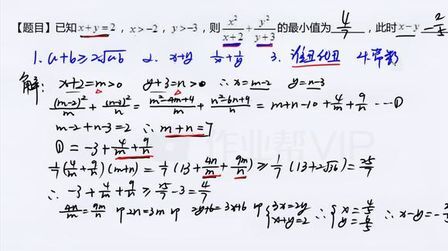 【题目】已知x+y=2，x>-2，y>-3，则 x²/(x+2) + y²/(y+3) 的最小值为 4/7，此时x-y -2/5
1. a+b≥2√ab 2. x+y 1/x+1/y 3. 谁丑代丑 4. 常数
解: x+2=m>0 y+3=n>0 ∴ x=m-2 y=n-3
(m-2)²/m + (n-3)²/n = (m²-4m+4)/m + (n²-6n+9)/n = m+n-10+4/m+9/n ---①
m-2+n-3=2 ∴ m+n=7
① = -3+4/m+9/n
1/7(4/m+9/n)(m+n) = 1/7(13+4n/m+9m/n) ≥ 1/7(13+2√36) = 25/7
∴ -3+4/m+9/n ≥ 25/7-3 = 4/7
4n/m = 9m/n 即 2n=3m 即 2y+6=3x+6 即 {3x=2y x+y=2 ∴ {x=4/5 y=6/5 ∴ x-y=-2/5
作业帮VIP